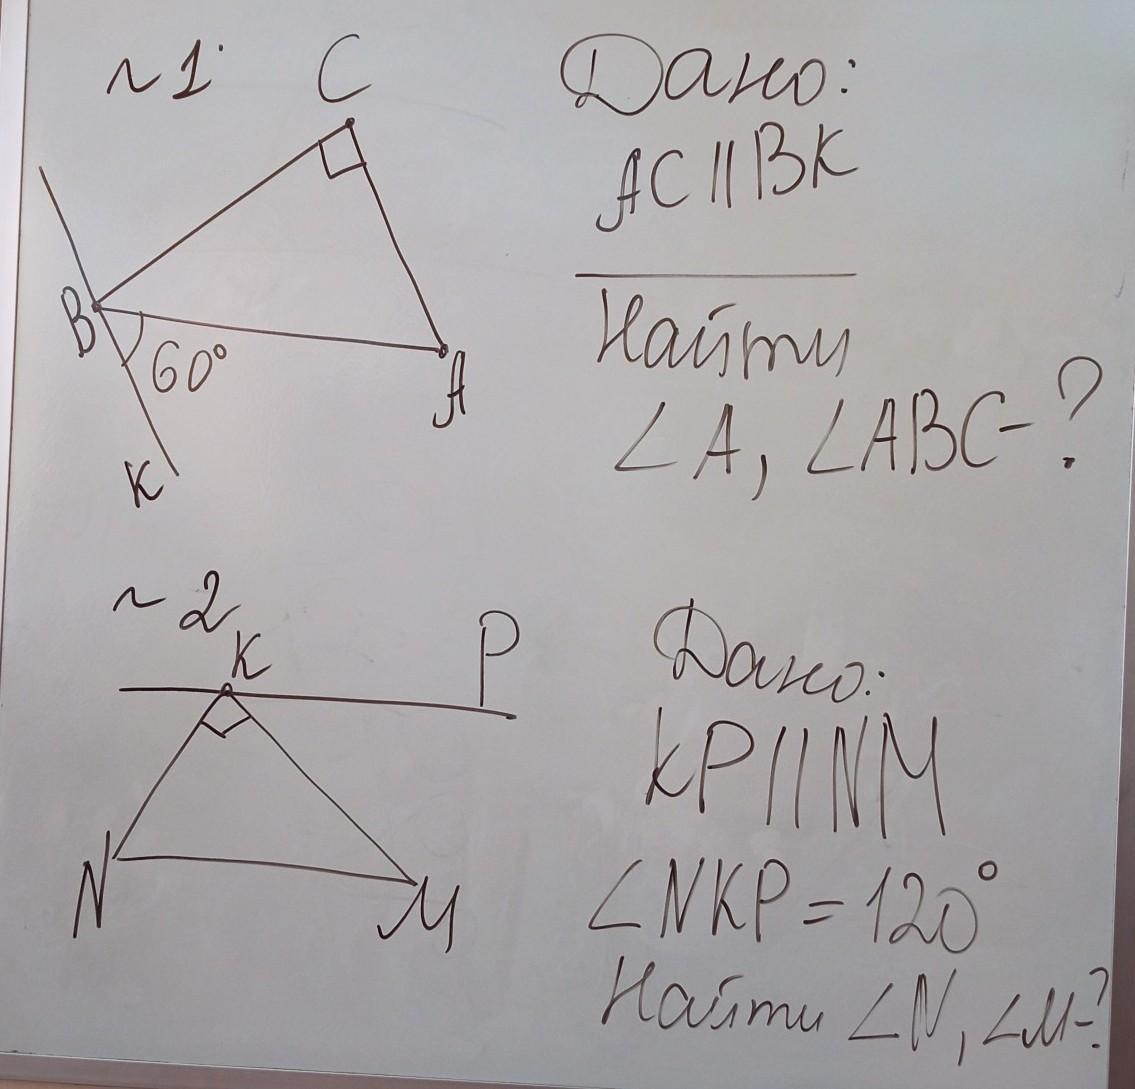 ~1.
C
B
60°
A
K
Дано:
AC || BK
Найти
∠A, ∠ABC-?
~2
K
P
N
M
Дано:
KP || NM
∠NKP = 120°
Найти ∠N, ∠M-?